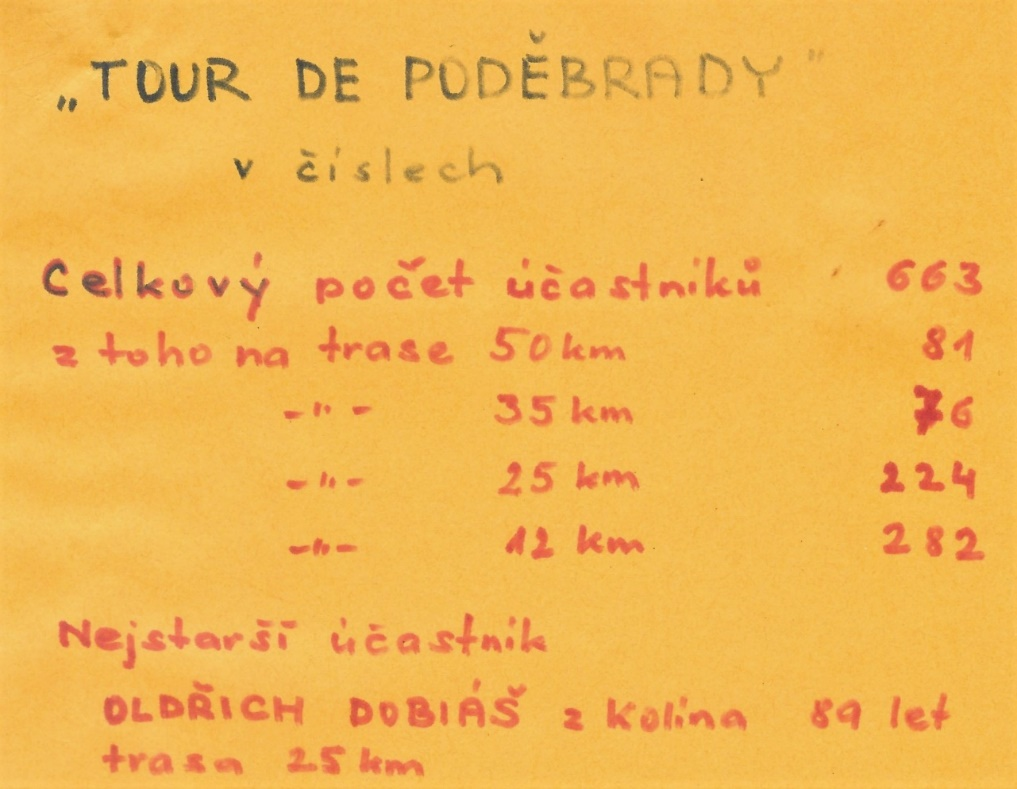 „TOUR DE PODĚBRADY"
v číslech
Celkový počet účastníků 663
z toho na trase 50 km 81
-"- 35 km 76
-"- 25 km 224
-"- 12 km 282
Nejstarší účastník
OLDŘICH DOBIÁŠ z Kolína 89 let
trasa 25 km